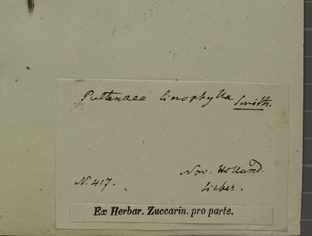 Pultenaea linophylla Smith.
Nov. Holland.
N. 417.
Sieber.
Ex Herbar. Zuccarin. pro parte.